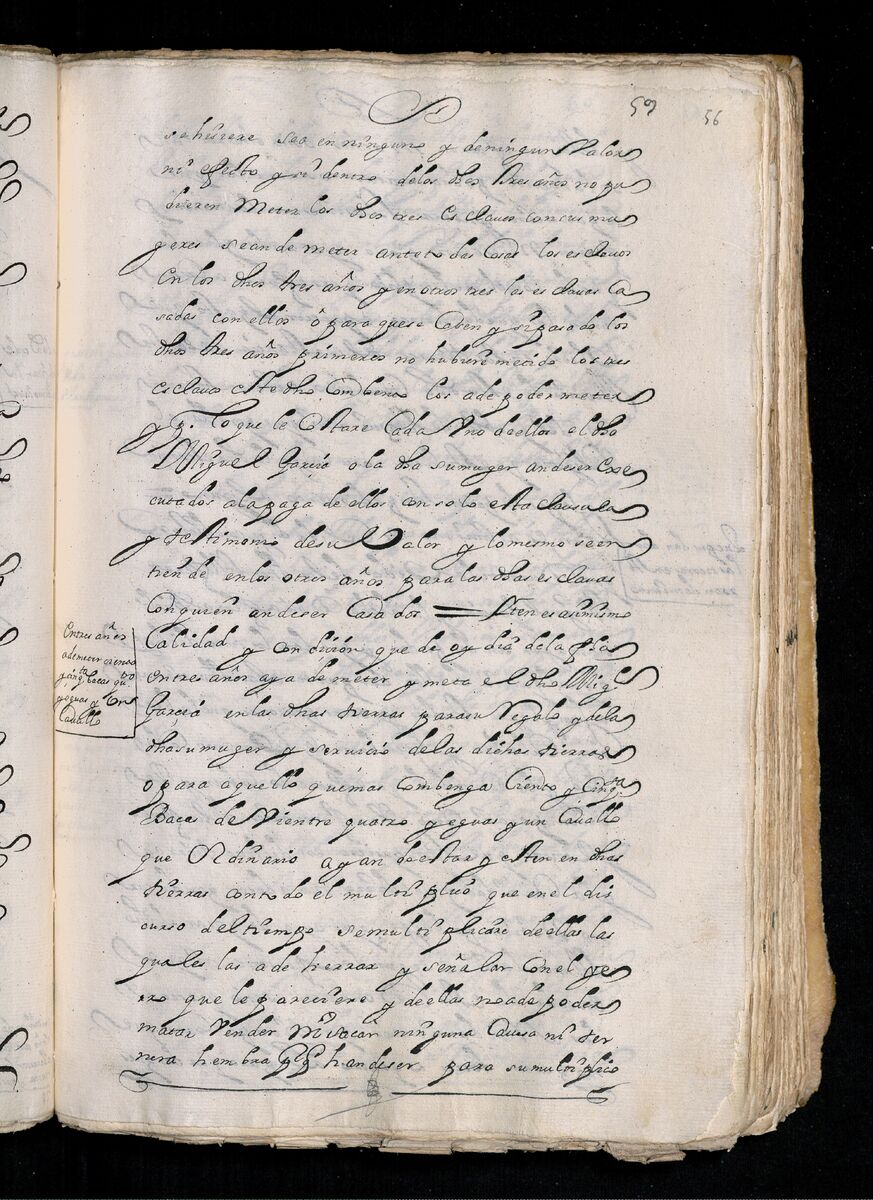 59 56
se hisiere sea en ninguno y de ningun Valor
ni efecto y si dentro de los dhos tres años no pu
dieren Meter los dhos tres esclavos con sus mu
geres sean de meter ante todas Cosas los esclavos
en los dhos tres años y en otros tres las esclavas Ca
sadas con ellos ô para que se Casen y si pasado los
dhos tres años primeros no hubiere metido los tres
esclavos este dho Combento los a de poder meter
y p. lo que le Costare Cada Uno de ellos el dho
Miguel Garcia o la dha su muger an de ser Exe
cutados a la paga de ellos con solo esta Clausula
y testimonio de su Valor y lo mismo se en
tiende en los otros años para las dhas esclavas
Con quien an de ser Casados = Iten es asimismo
Calidad y condicion que de oy dia de la fha
en tres años aya de meter y meta el dho Migl
Garcia en las dhas tierras para su Regalo y de la
dha su muger y servicio de las dichas tierras
o para aquello que mas Combenga Ciento y Cinqta
Bacas de Vientre quatro yeguas y un Cavallo
que Ordinario ayan de estar y esten en dhas
tierras con todo el multiplico que en el dis
curso del tiempo se multiplicare de ellas las
quales las a de herrar y señalar con el ye
rro que le pareciere y de ellas no a de poder
matar Vender Ni sacar ninguna Cavesa ni ter
nera hembra pq han de ser para su multiplico
En tres años
a de meter ciento
y cinqta bacas quo
yeguas y Un
Cavallo